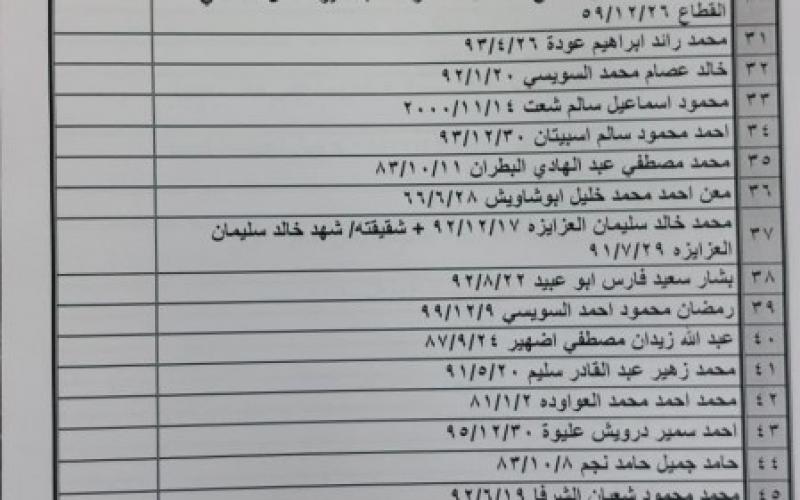 القطاع ٥٩/١٢/٢٦
٣١ محمد رائد ابراهيم عودة ٩٣/٤/٢٦
٣٢ خالد عصام محمد السويسي ٩٢/١/٢٠
٣٣ محمود اسماعيل سالم شعت ٢٠٠٠/١١/١٤
٣٤ احمد محمود سالم اسبيتان ٩٣/١٢/٣٠
٣٥ محمد مصطفي عبد الهادي البطران ٨٣/١٠/١١
٣٦ معن احمد محمد خليل ابوشاويش ٦٦/٦/٢٨
٣٧ محمد خالد سليمان العزايزه ٩٢/١٢/١٧ + شقيقته/ شهد خالد سليمان
العزايزه ٩١/٧/٢٩
٣٨ بشار سعيد فارس ابو عبيد ٩٢/٨/٢٢
٣٩ رمضان محمود احمد السويسي ٩٩/١٢/٩
٤٠ عبد الله زيدان مصطفي اضهير ٨٧/٩/٢٤
٤١ محمد زهير عبد القادر سليم ٩١/٥/٢٠
٤٢ محمد احمد محمد العواوده ٨١/١/٢
٤٣ احمد سمير درويش عليوة ٩٥/١٢/٣٠
٤٤ حامد جميل حامد نجم ٨٣/١٠/٨
٤٥ محمد محمود شعبان الشرفا ٩٢/٦/١٩